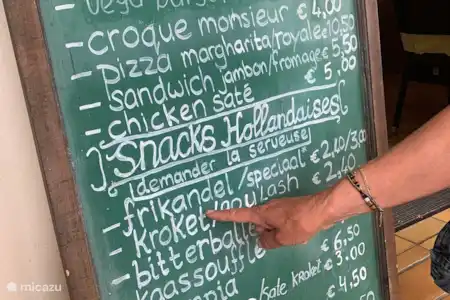 vega burger
- croque monsieur € 4,00
- pizza margharita/royale 10,50
- sandwich jambon/fromage 5,50
- chicken saté € 5,00
Snacks Hollandaises
(demander la serveuse)
- frikandel/speciaal* € 2,40/3,00
- kroket/goulash € 2,40
- bitterballe
- kaassouffle € 6,50
/sate kroket € 3,00
€ 4,50
micazu